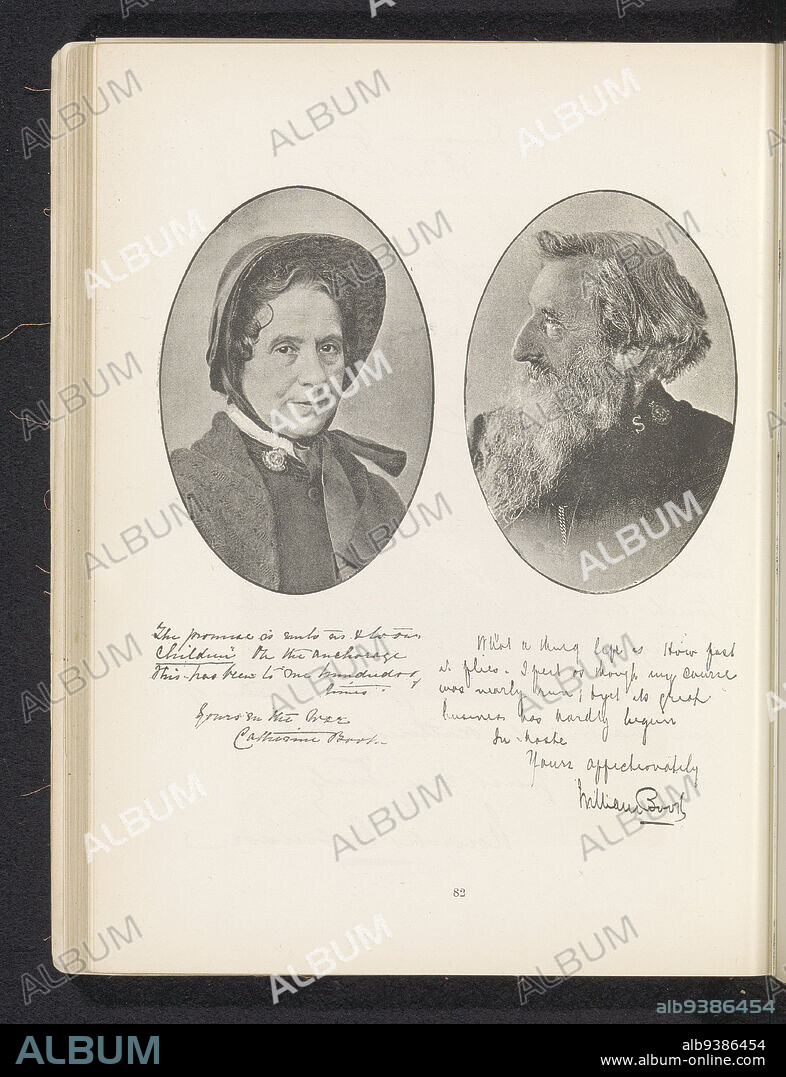 The promise is unto us & to our
Children" Oh the anchorage
This has been to me hundreds of
times.
Yours in the War
Catherine Booth
What a thing life is How fast
it flies. I feel as though my course
was nearly run, & yet its great
business has hardly begun
In haste
Yours affectionately
William Booth
82
ALBUM
alb9386454
ALBUM
alb9386454
www.album-online.com